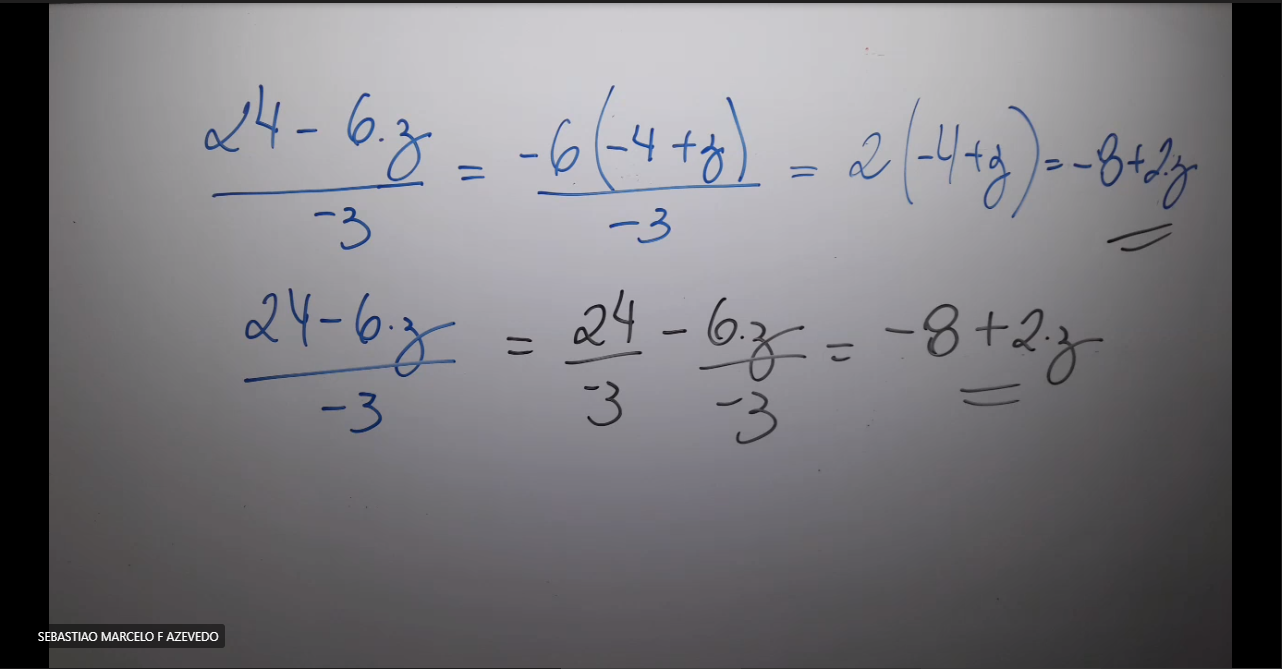 24 - 6.z / -3 = -6(-4+z) / -3 = 2(-4+z) = -8+2.z
24-6.z / -3 = 24 / -3 - 6.z / -3 = -8+2.z
SEBASTIAO MARCELO F AZEVEDO